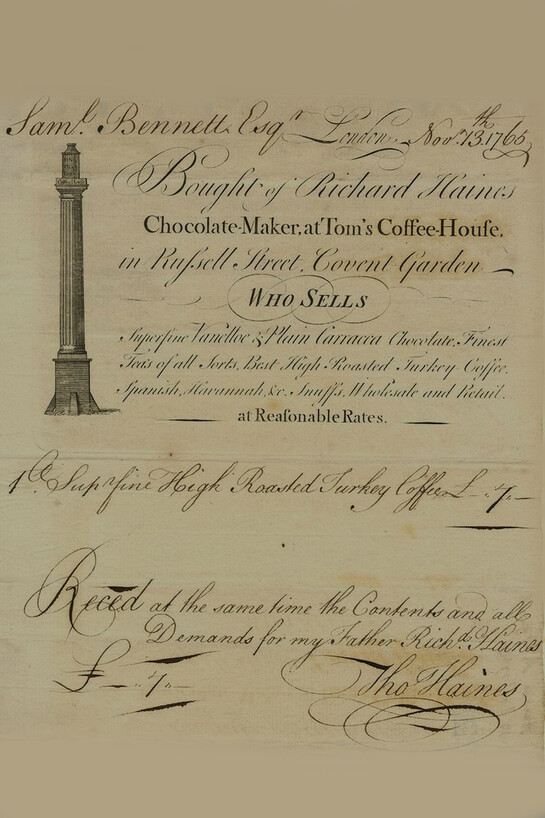 Saml. Bennett Esqr. London Novr. 13th. 1765
Bought of Richard Haines
Chocolate-Maker, at Tom's Coffee-Houſe,
in Ruſsell Street, Covent Garden
WHO SELLS
Superfine Vanelloe & Plain Carracca Chocolate, Finest
Tea's of all Sorts, Best High Roasted Turkey Coffee,
Spanish, Havannah, &c. Snuffs, Wholesale and Retail.
at Reaſonable Rates.
Supfine High Roasted Turkey Coffee £ - „ 7 „ -
Reced at the same time the Contents and all
Demands for my Father Richd. Haines
£ - „ 7 „ -
Tho Haines